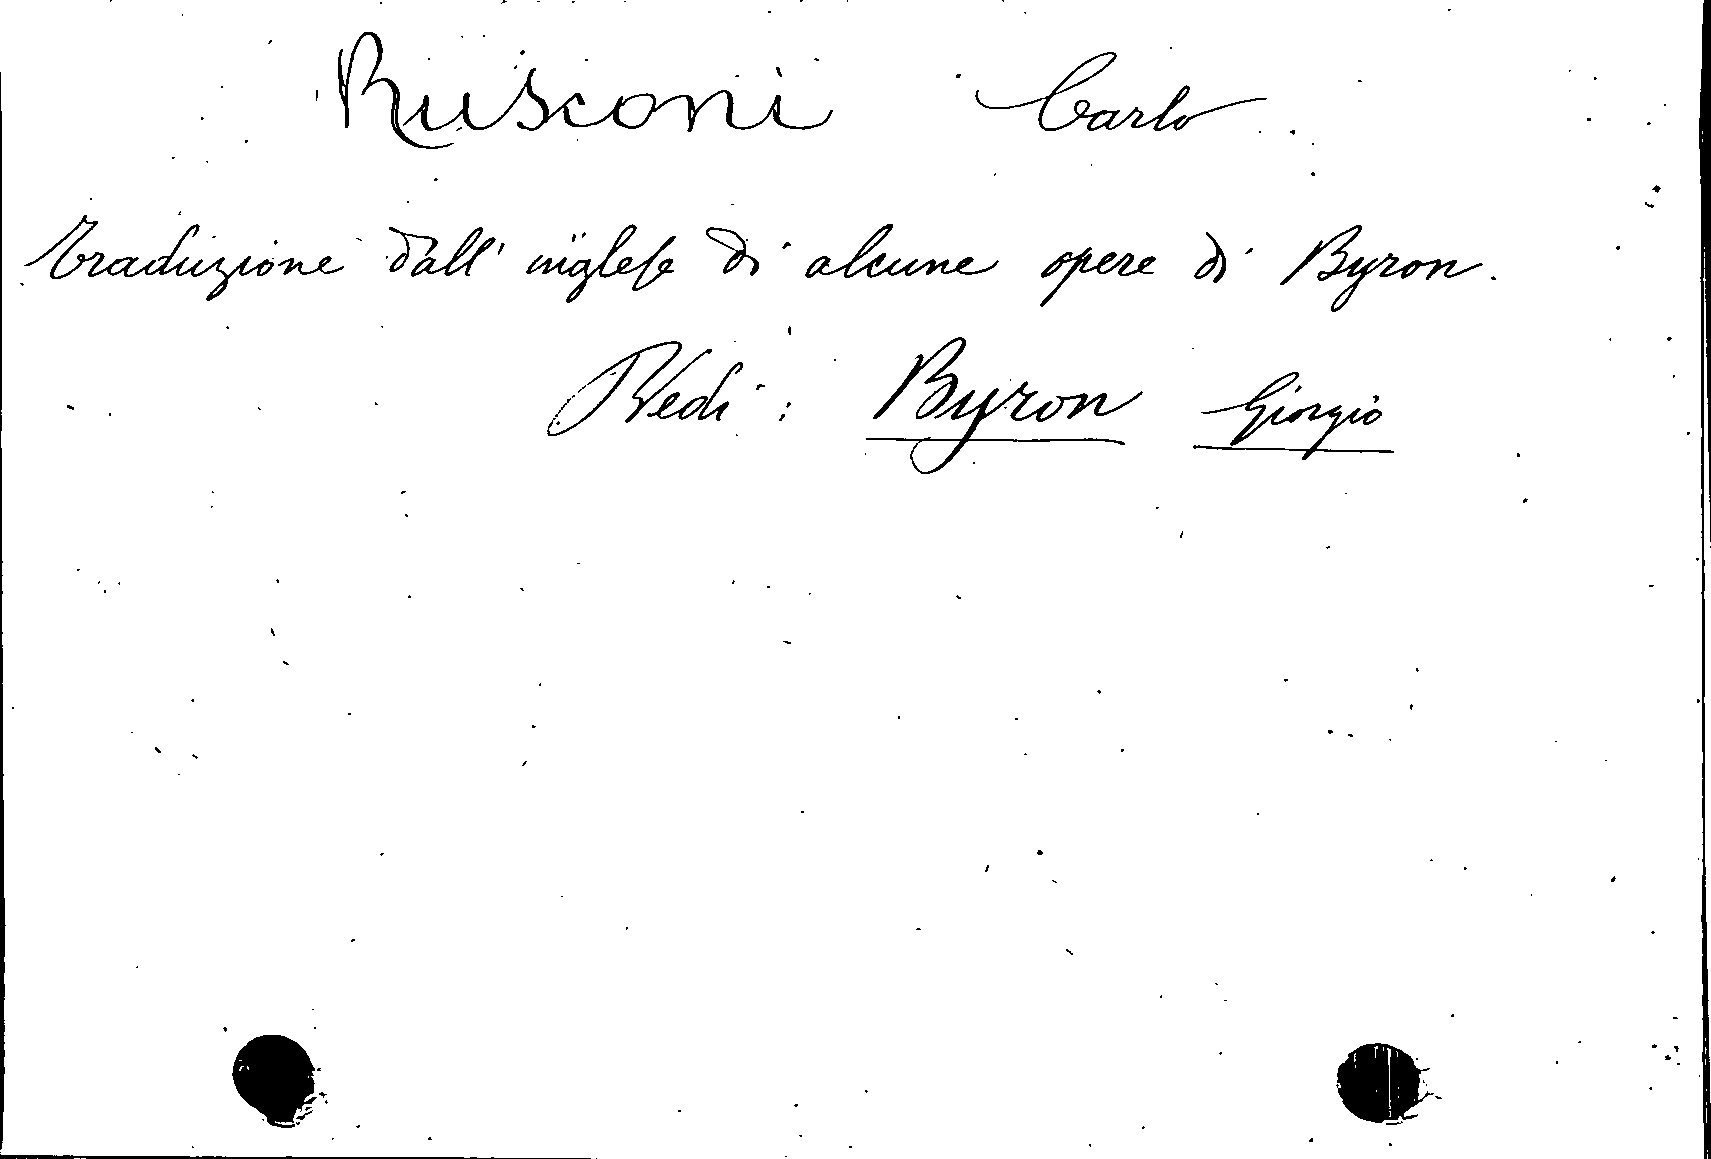 Rusconi Carlo
Traduzione dall' inglese di alcune opere di Byron.
Vedi: Byron Giorgio